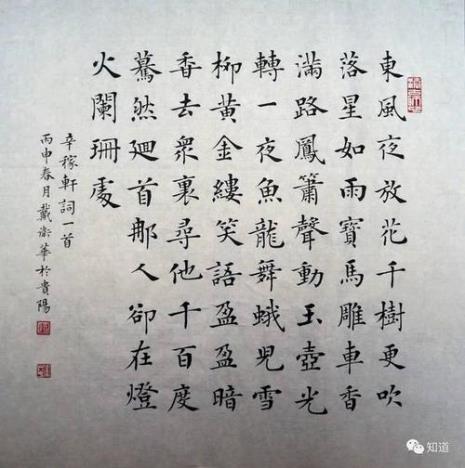 東風夜放花千樹更吹
落星如雨寶馬雕車香
滿路鳳簫聲動玉壺光
轉一夜魚龍舞蛾兒雪
柳黃金縷笑語盈盈暗
香去衆裏尋他千百度
驀然廻首那人卻在燈
火闌珊處
辛稼軒詞一首
丙申春月戴華於貴陽
知道